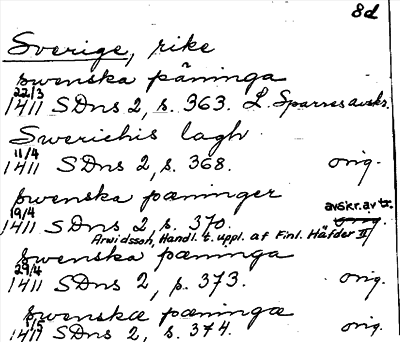 8d
Sverige, rike
swenska päninga
22/3
1411 SDns 2, s. 363. L. Sparres avskr.
Swerichis lagh
11/4
1411 SDns 2, s. 368. orig.
swenska pæninger
19/4 avskr. av tr.
1411 SDns 2, s. 370. orig.
Arwidsson, Handl. t. uppl. af Finl. Häfder II
swenska pæninga
29/4
1411 SDns 2, s. 373. orig.
swenskæ pæningæ
1/5
1411 SDns 2, s. 374. orig.